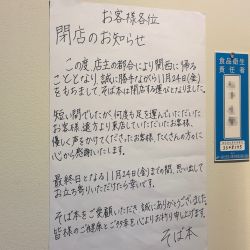 お客様各位
閉店のお知らせ
この度、店主の都合により関西に帰る
こととなり、誠に勝手ながら11月24日(金)
をもちまして、そば本は閉店する運びとなりました。
短い間でしたが、何度も足を運んでいただいた
お客様、遠方より来店していただいたお客様、
優しく声をかけてくださったお客様、たくさんの方々に
心から感謝いたします。
最終日となる11月24日(金)までの間、思い出して
お立ち寄りいただけたら幸いです。
そば本をご愛顧いただき誠にありがとうございました。
皆様のご健康とご多幸を心よりお祈り申し上げます。
そば本
食品衛生
責任者